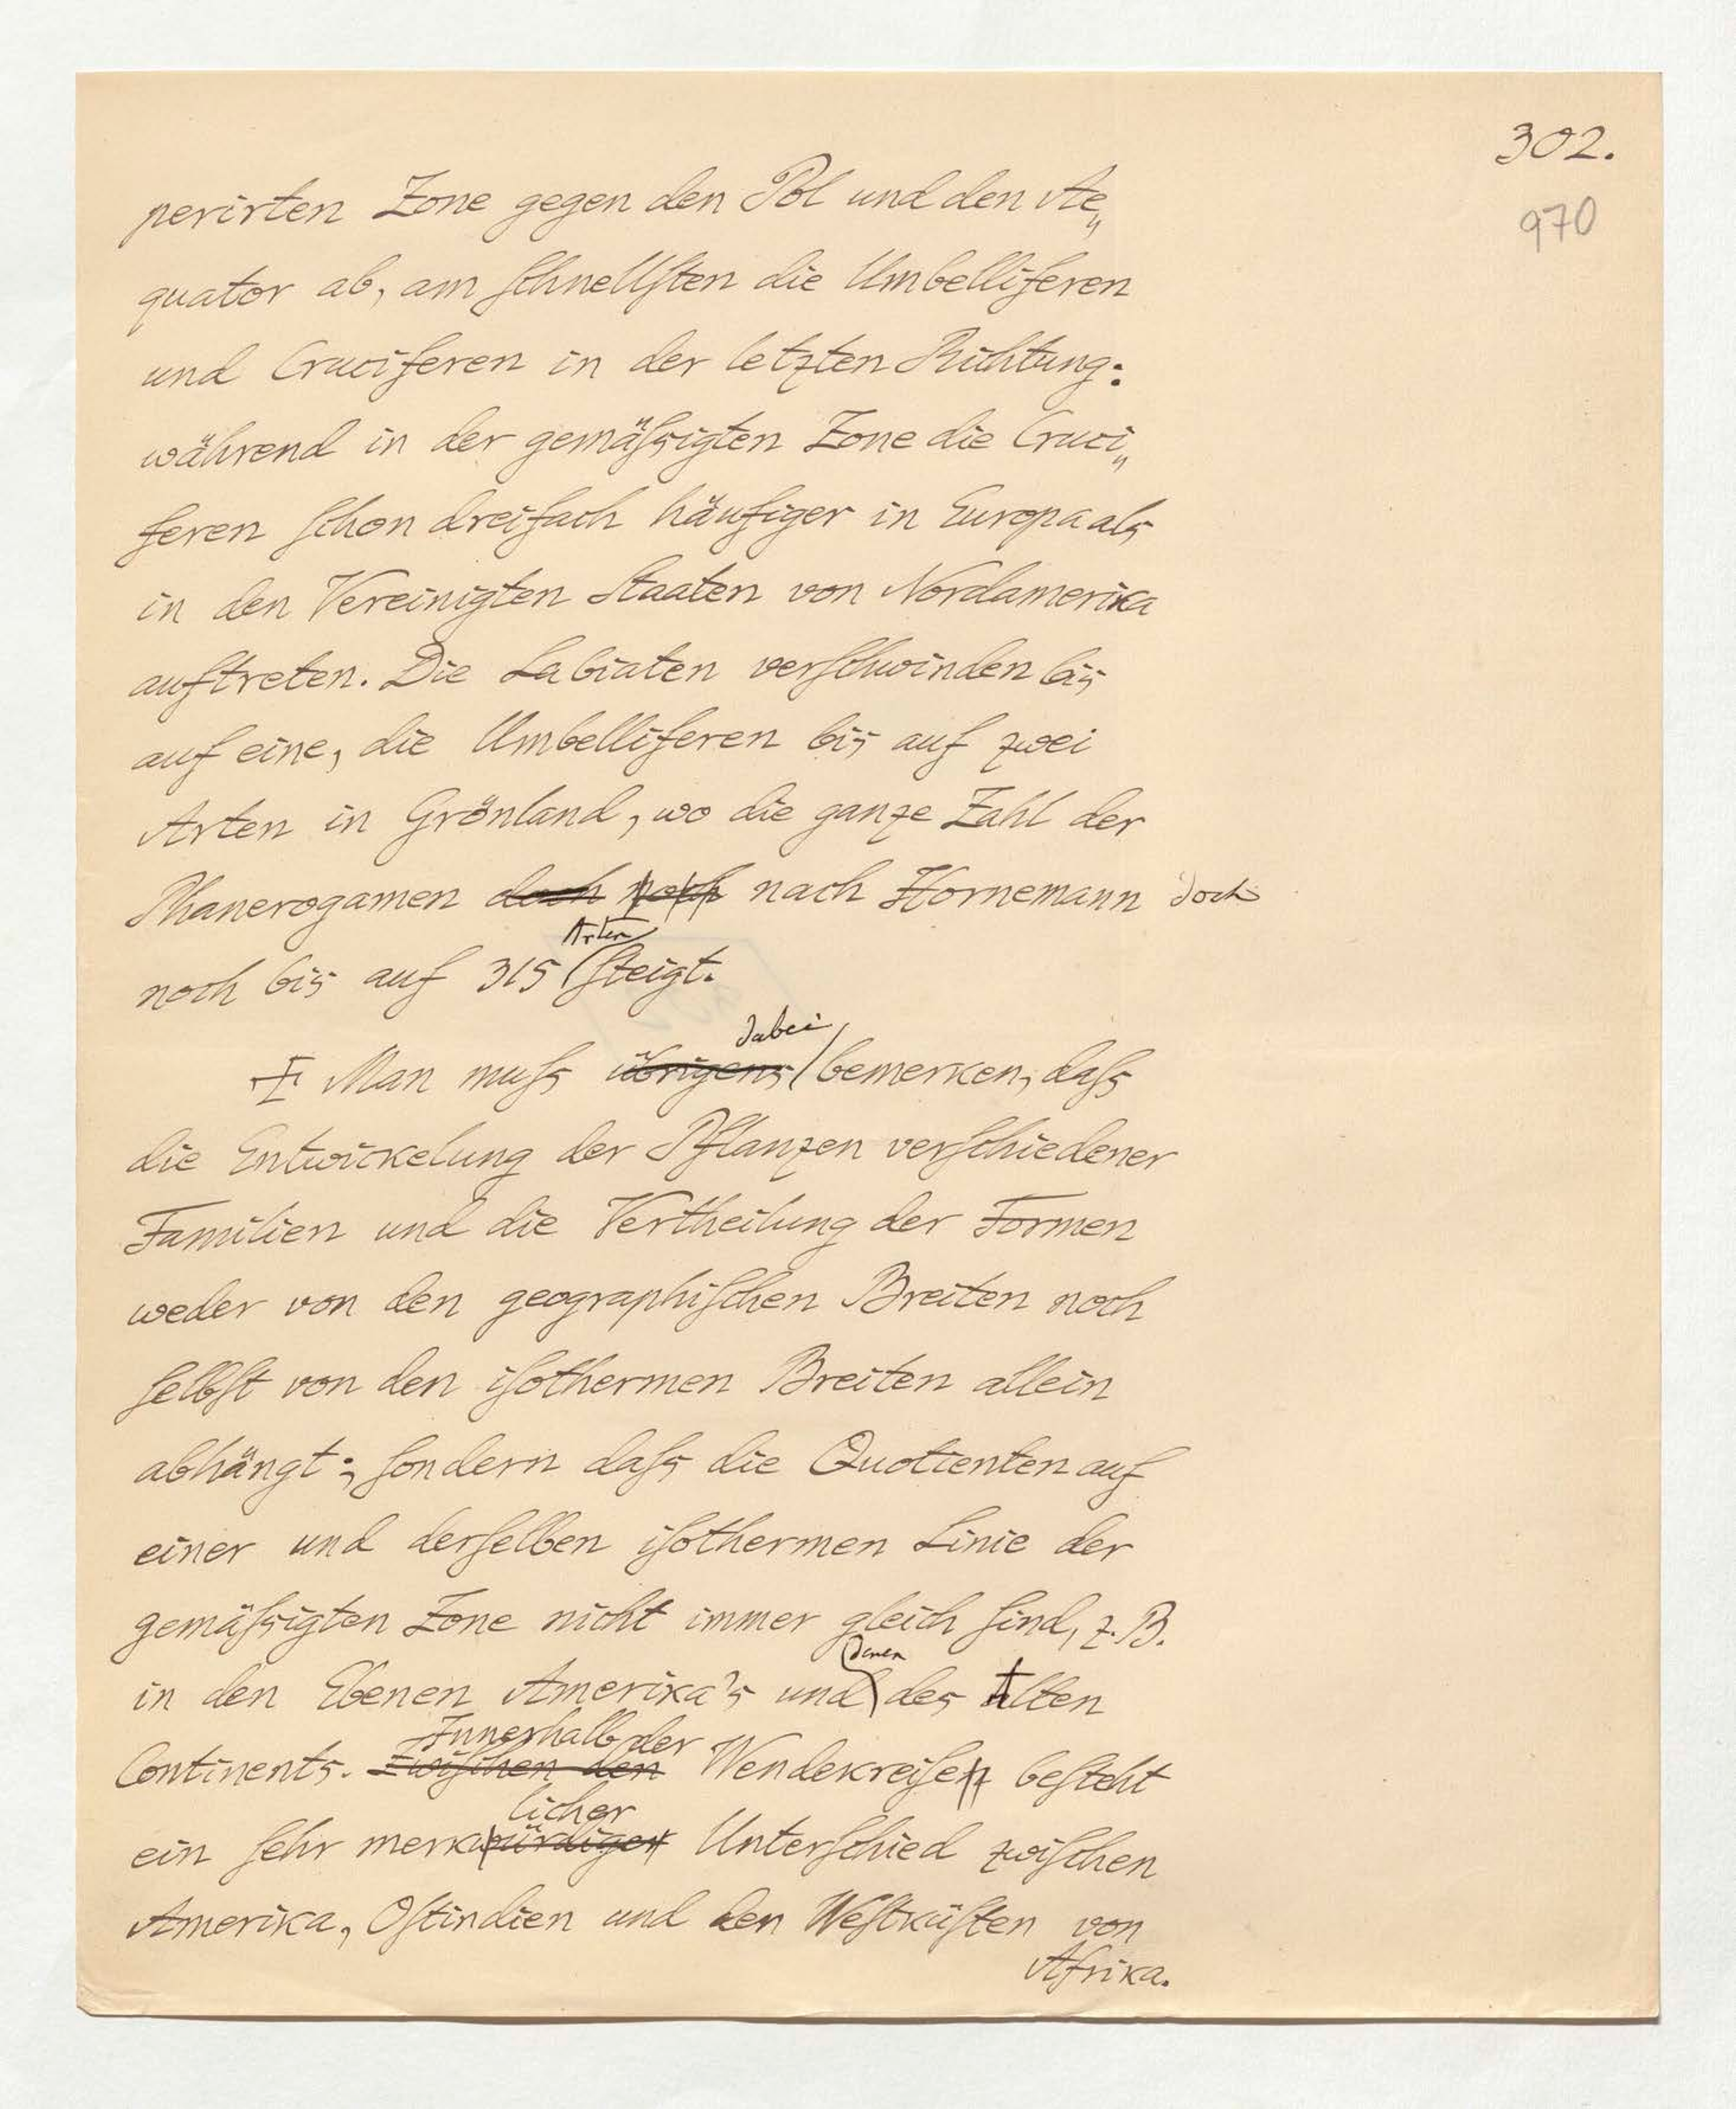 302.
970
perirten Zone gegen den Pol und den Ae„
quator ab, am ſchnellſten die Umbelliferen
und Cruciferen in der letzten Richtung:
während in der gemäſsigten Zone die Cruci„
feren ſchon dreifach häufiger in Europa als
in den Vereinigten Staaten von Nordamerika
auftreten. Die Labiaten verſchwinden bis
auf eine, die Umbelliferen bis auf zwei
Arten in Grönland, wo die ganze Zahl der
Phanerogamen doch noch nach Hornemann doch
Arten
noch bis auf 315 ſteigt.
dabei
Man muſs übrigens bemerken, daſs
die Entwickelung der Pflanzen verſchiedener
Familien und die Vertheilung der Formen
weder von den geographiſchen Breiten noch
ſelbſt von den iſothermen Breiten allein
abhängt; ſondern daſs die Quotienten auf
einer und derſelben iſothermen Linie der
gemäſsigten Zone nicht immer gleich ſind, z. B.
denen
in den Ebenen Amerika's und des Alten
Innerhalb der
Continents. Zwiſchen den Wendekreiſen beſteht
licher
ein ſehr merkwürdiger Unterſchied zwiſchen
Amerika, Oſtindien und den Weſtküſten von
Afrika.